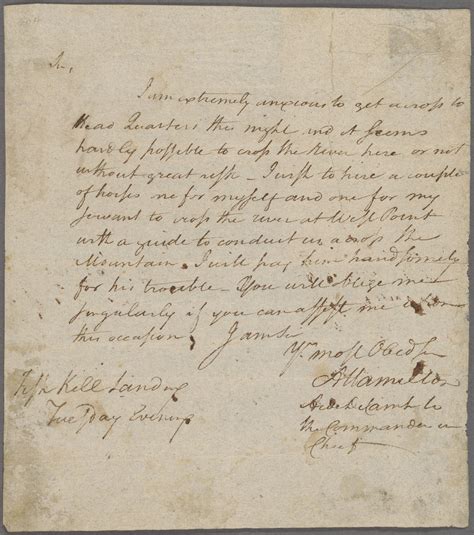 Sir,
I am extremely anxious to get across to
Head Quarters this night and it seems
hardly possible to cross the River here or not
without great risk – I wish to hire a couple
of horses one for myself and one for my
servant to cross the river at West Point
with a guide to conduct us across the
Mountain. I will pay him handsomely
for his trouble – You will oblige me
singularly if you can assist me upon
this occasion I am Sir
Yr most Obed Se
A Hamilton
Aide De Camp to
the Commander in
Chief
Fish Kill Landing
Tuesday Evening